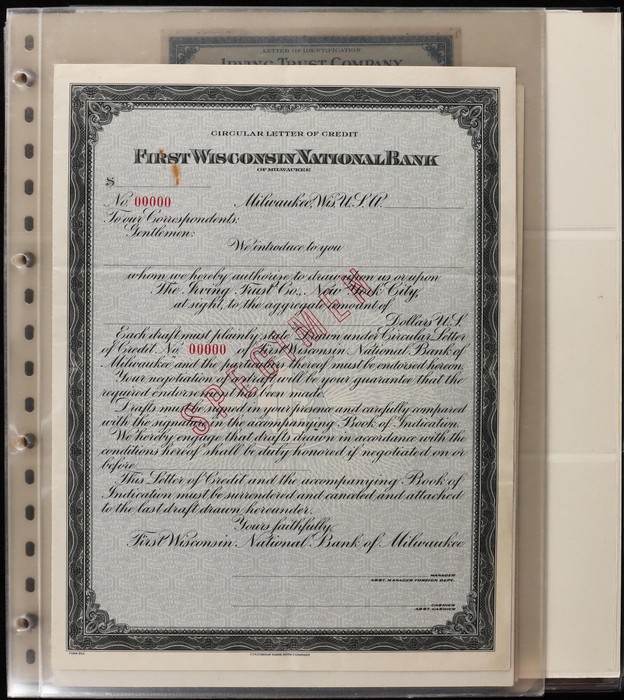 LETTER OF IDENTIFICATION
IRVING TRUST COMPANY
CIRCULAR LETTER OF CREDIT
FIRST WISCONSIN NATIONAL BANK
OF MILWAUKEE
$
No. 00000 Milwaukee, Wis. U.S.A.
To our Correspondents:
Gentlemen:
We introduce to you
whom we hereby authorize to draw upon us or upon
The Irving Trust Co., New York City,
at sight, to the aggregate amount of
Dollars U.S.
Each draft must plainly state "Drawn under Circular Letter
of Credit No. 00000 of First Wisconsin National Bank of
Milwaukee and the particulars thereof must be endorsed hereon.
Your negotiation of a draft will be your guarantee that the
required endorsement has been made.
Drafts must be signed in your presence and carefully compared
with the signature in the accompanying Book of Indication.
We hereby engage that drafts drawn in accordance with the
conditions hereof shall be duly honored if negotiated on or
before
This Letter of Credit and the accompanying Book of
Indication must be surrendered and canceled and attached
to the last draft drawn hereunder.
Yours faithfully,
First Wisconsin National Bank of Milwaukee
MANAGER
ASST. MANAGER FOREIGN DEPT.
CASHIER
ASST. CASHIER
SPECIMEN